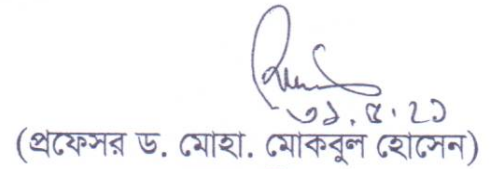 ৩১.৫.২১
(প্রফেসর ড. মোহা. মোকবুল হোসেন)